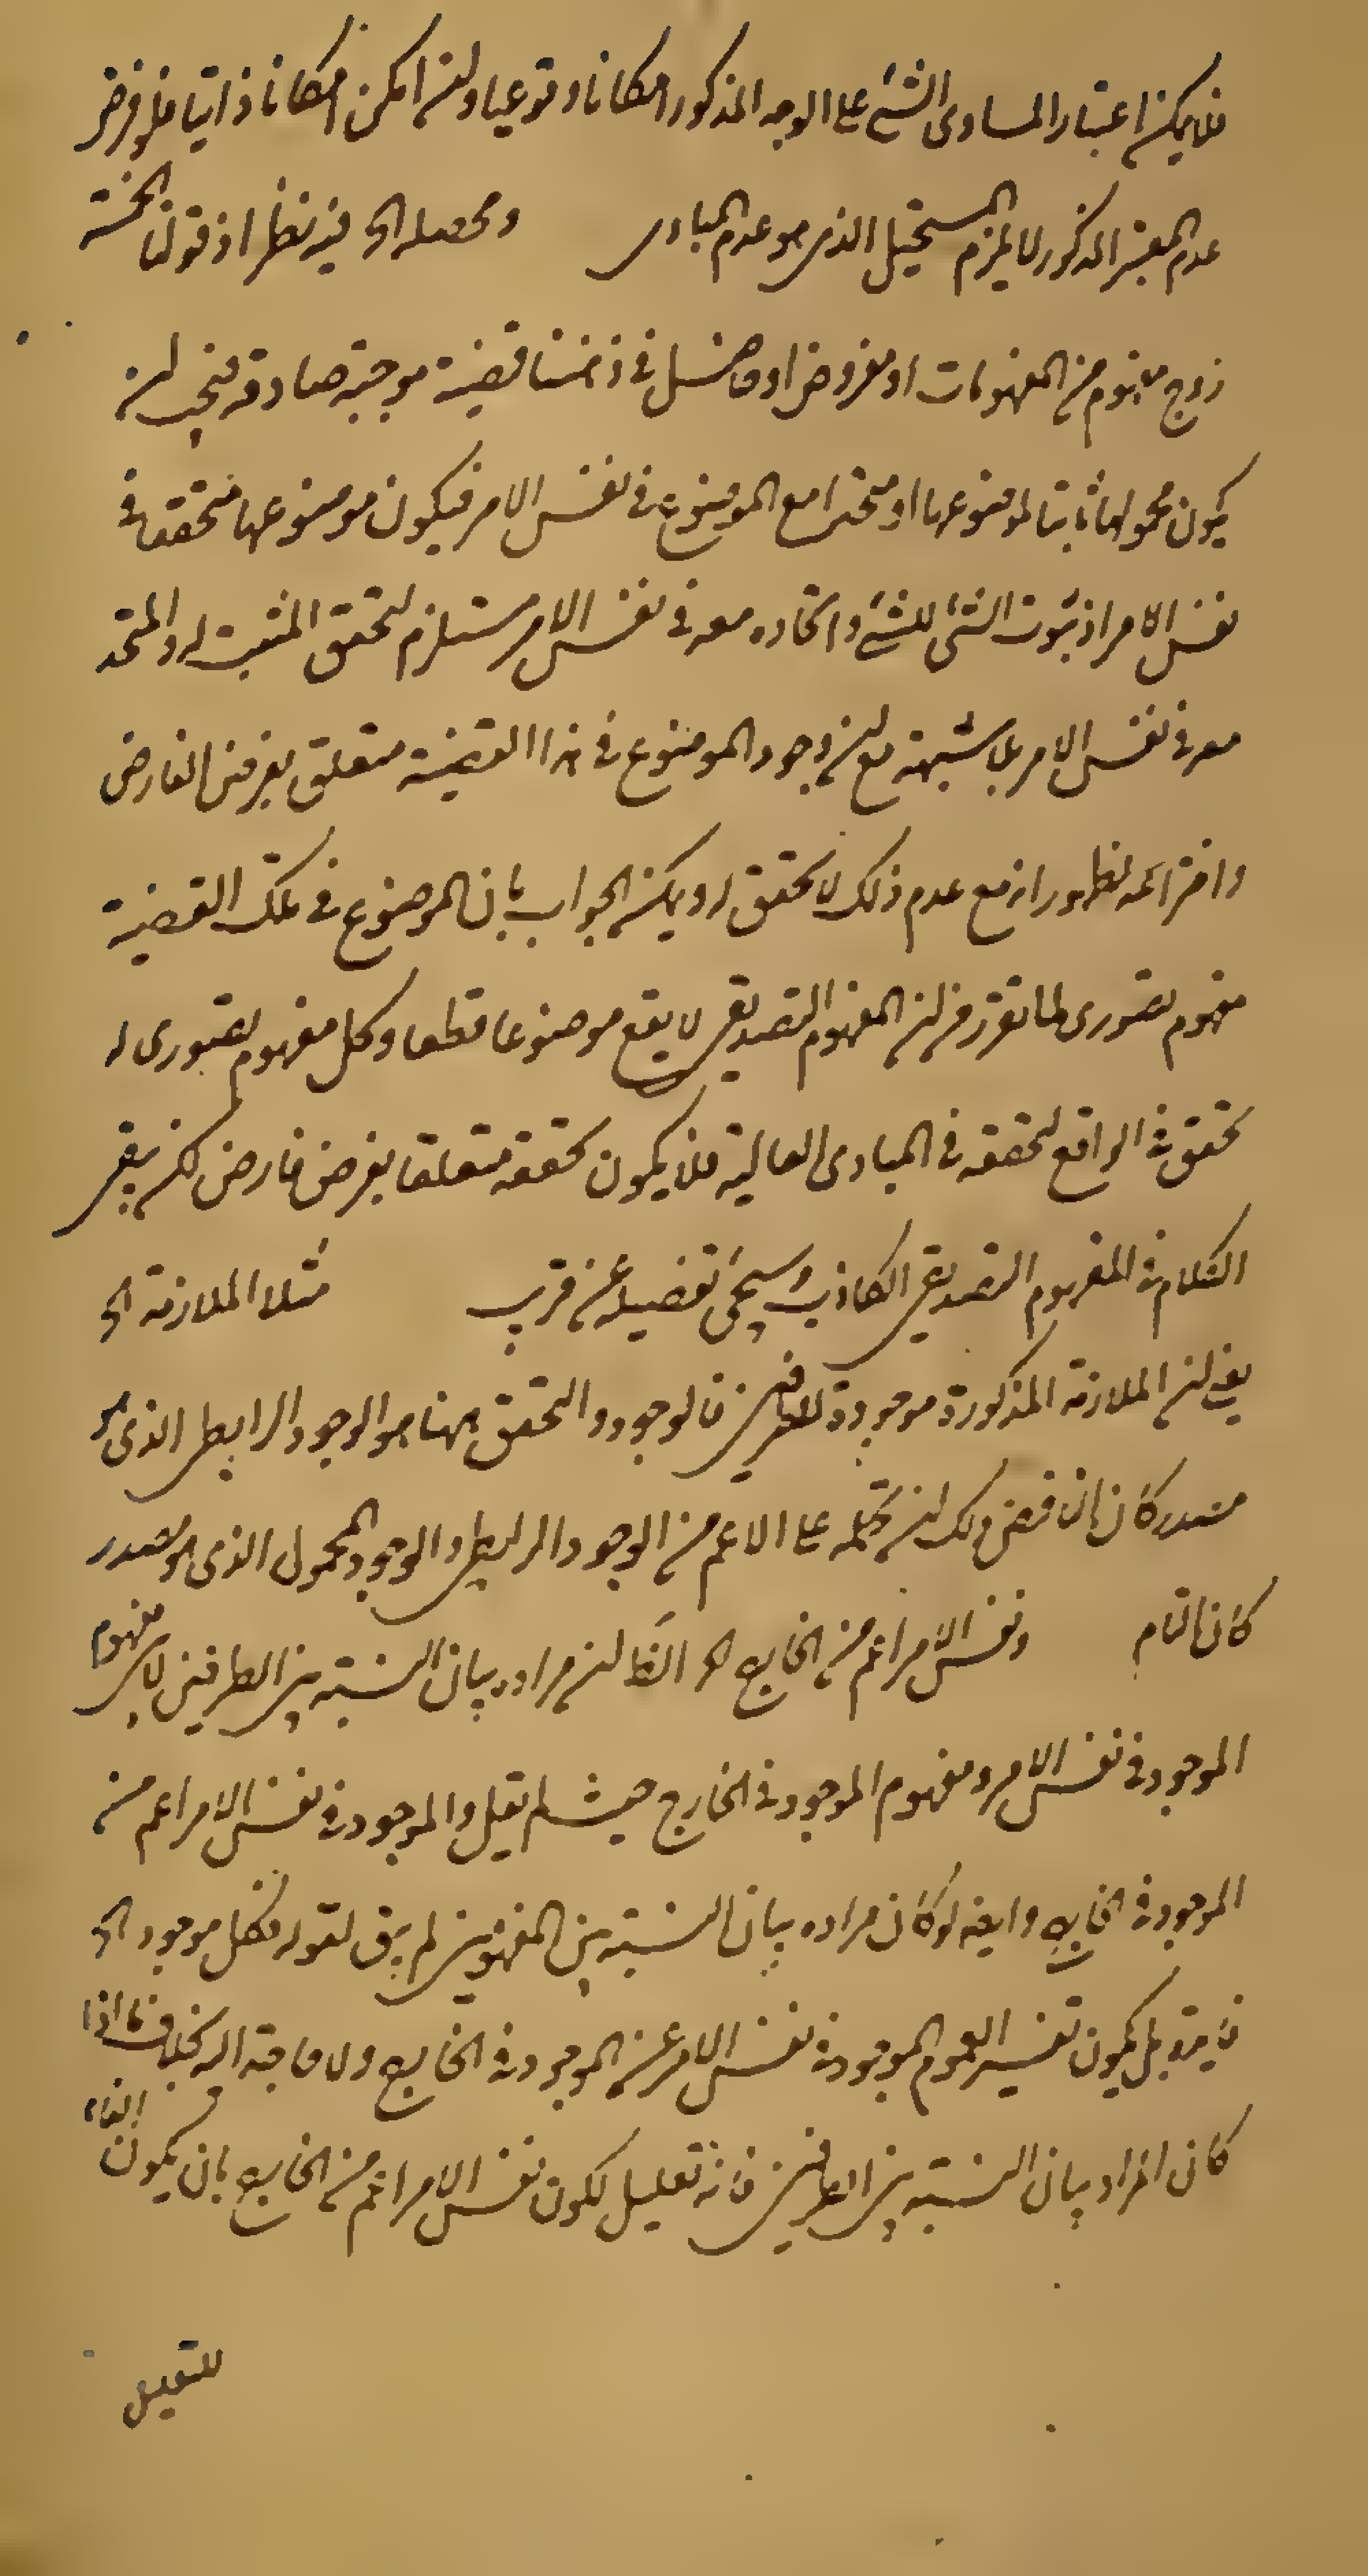 فلا يمكن اعتبار المساوى الشئ على الوجه المذكور امكانا وقوعيا وان امكن امكانا ذاتيا فلو فرض
عدم المعتبر المذكور لا يلزم المستحيل الذى هو عدم المبادى ومحصله الخ فيه نظر اذ قولنا الخمسة
زوج مفهوم من المفهومات او مفروض او حاصل فى ذهننا قضية موجبة صادقة فيجب ان
يكون محمولها ثابتا لموضوعها او متحدا مع الموضوع فى نفس الامر فيكون موضوعها متحققا فى
نفس الامر اذ ثبوت الشئ للشئ واتحاده معه فى نفس الامر مستلزم لتحقق المثبت له والمتحد
معه فى نفس الامر بلا شبهة مع ان وجود الموضوع فى هذا القضية متعلق بفرض الفارض
واختراعه لظهور انه مع عدم ذلك لا تحقق له ويمكن الجواب بان الموضوع فى تلك القضية
مفهوم تصورى لما تقرر من ان المفهوم التصديقى لا يقع موضوعا قطعا وكل مفهوم تصورى له
تحقق فى الواقع لتحققه فى المبادى العالية فلا يكون تحققه متعلقا بفرض فارض لكن يبقى
الكلام فى المفهوم التصديقى الكاذب وسيجئ تفصيله عن قريب مثلا الملازمة الخ
يعنى ان الملازمة المذكورة موجودة للطرفين فالوجود والتحقق ههنا هو الوجود الرابطى الذى هو
مصدر كان الناقص ولك ان تحمله على الاعم من الوجود الرابطى والوجود المحمول الذى هو مصدر
كان التام ونفس الامر اعم من الخارج الخ الظ ان مراده بيان النسبة بين الطرفين لا بين مفهوم
الموجود فى نفس الامر ومفهوم الموجود فى الخارج حيث لم يقل والموجود فى نفس الامر اعم من
الموجود فى الخارج وايضا لو كان مراده بيان النسبة بين المفهومين لم يبق لقوله فكل موجود الخ
فائدة بل يكون تفسير العموم الموجود فى نفس الامر عن الموجود فى الخارج ولا حاجة اليه بخلاف ما اذا
كان المراد بيان النسبة بين الطرفين فانه تعليل لكون نفس الامر اعم من الخارج بان يكون الفاء
للتعليل